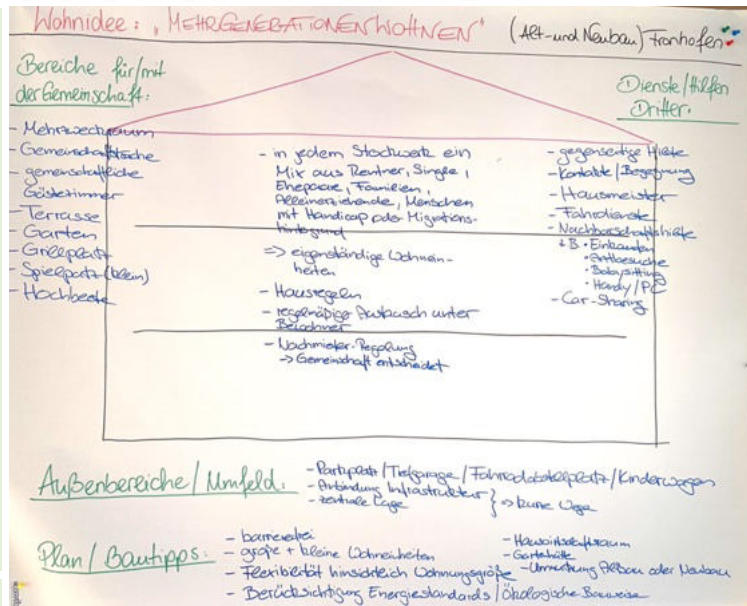 Wohnidee: "MEHRGENERATIONENWOHNEN" (Alt- und Neubau) Fronhofen
Bereiche für/mit
der Gemeinschaft:
- Mehrzweckraum
- Gemeinschaftsküche
- gemeinschaftliche
Gästezimmer
- Terrasse
- Garten
- Grillplatz
- Spielplatz (klein)
- Hochbeete
- in jedem Stockwerk ein
Mix aus Rentner, Single,
Ehepaare, Familien,
Alleinerziehende, Menschen
mit Handicap oder Migrations-
hintergrund
=> eigenständige Wohnein-
heiten
- Hausregeln
- regelmäßige Austausch unter
Bewohner
- Nachmieter-Regelung
-> Gemeinschaft entscheidet
Dienste/Hilfen
Dritter:
- gegenseitige Hilfe
- Kontakte/Begegnung
- Hausmeister
- Fahrdienste
- Nachbarschaftshilfe
z.B. • Einkaufen
• Arztbesuche
• Babysitting
• Handy/PC
- Car-Sharing
Außenbereiche/Umfeld:
- Parkplatz/Tiefgarage/Fahrradabstellplatz/Kinderwagen
- Anbindung Infrastruktur
- zentrale Lage } => kurze Wege
Plan/Bautipps:
- barrierefrei
- große + kleine Wohneinheiten
- Flexibilität hinsichtlich Wohnungsgröße
- Berücksichtigung Energiestandards/Ökologische Bauweise
- Hauswirtschaftsraum
- Gartenhütte
- Umnutzung Altbau oder Neubau